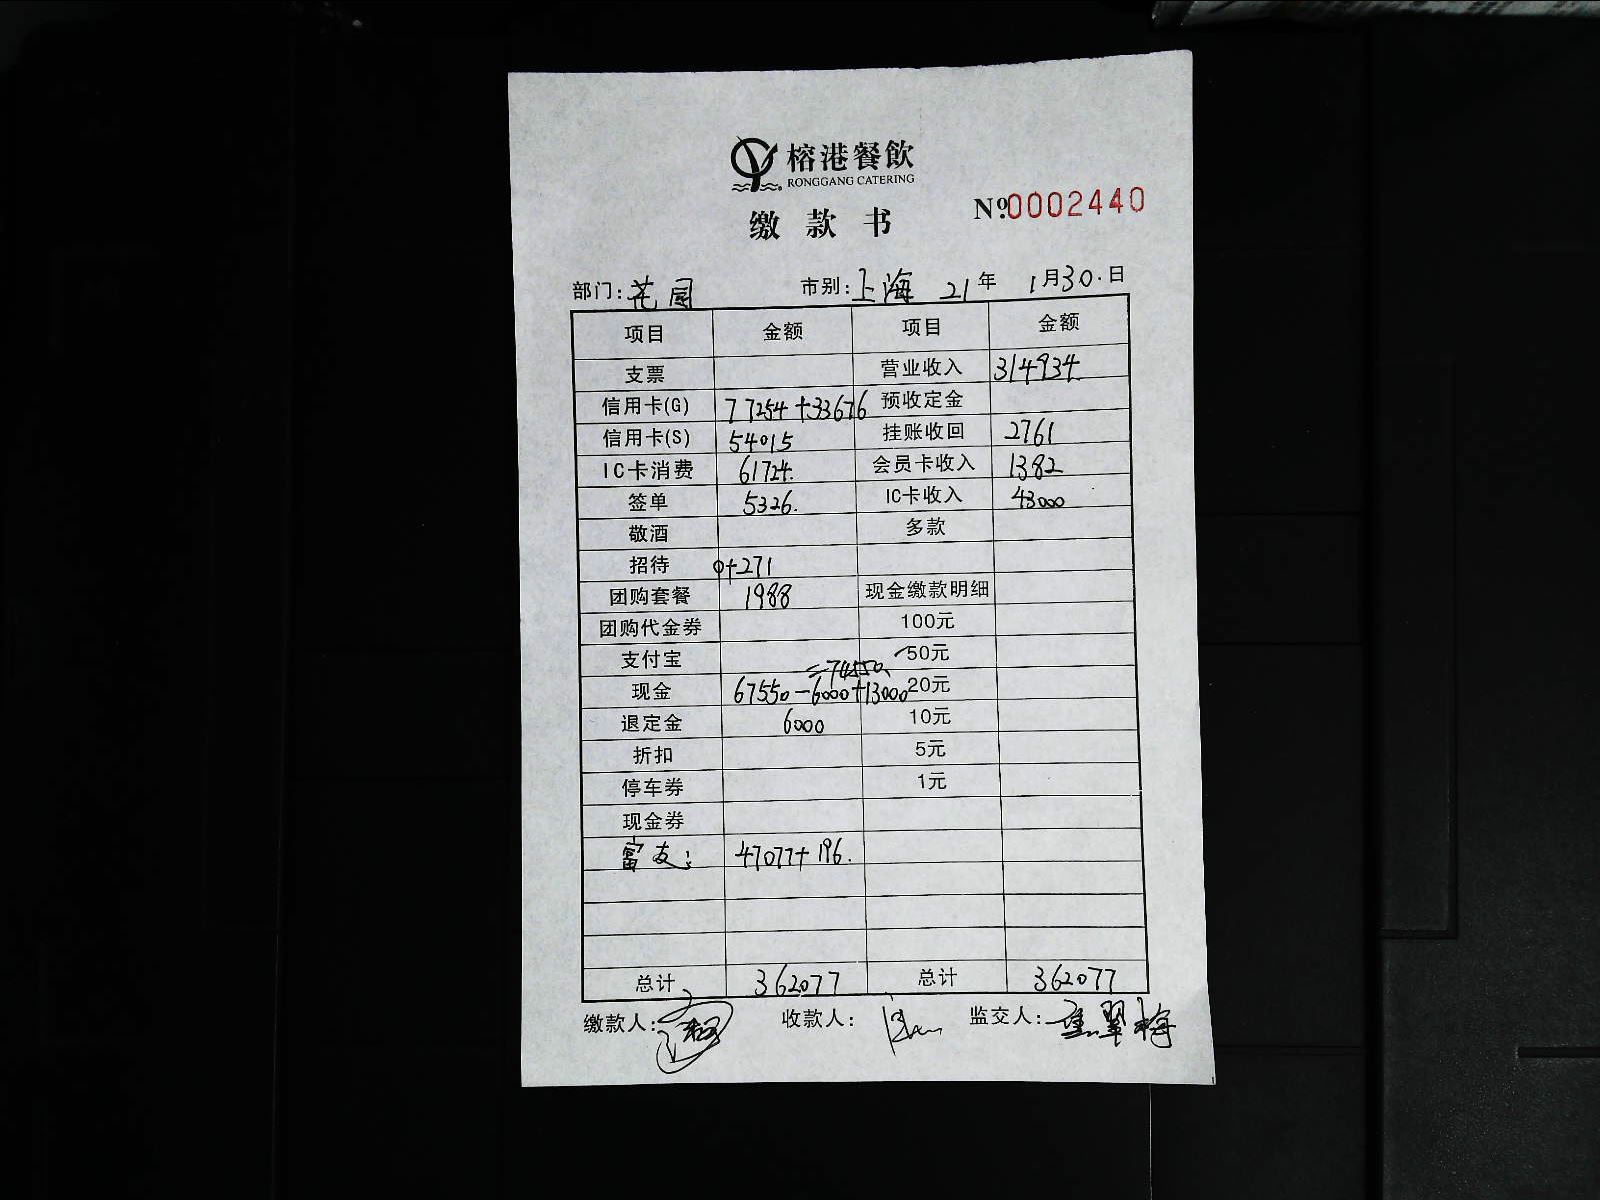 榕港餐飲
RONGGANG CATERING
缴款书
№0002440
部门：花园 市别：上海 21年 1月30.日
项目 金额 项目 金额
支票 营业收入 314934.
信用卡(G) 77254+33676 预收定金
信用卡(S) 54015 挂账收回 2761
IC卡消费 61724. 会员卡收入 1382
签单 5326. IC卡收入 43000
敬酒 多款
招待 0+271
团购套餐 1988 现金缴款明细
团购代金券 100元
支付宝 50元
=74550.
现金 67550-6000+13000 20元
退定金 6000 10元
折扣 5元
停车券 1元
现金券
富友： 47077+196.
总计 362077 总计 362077
缴款人： 收款人： 监交人：翠梅